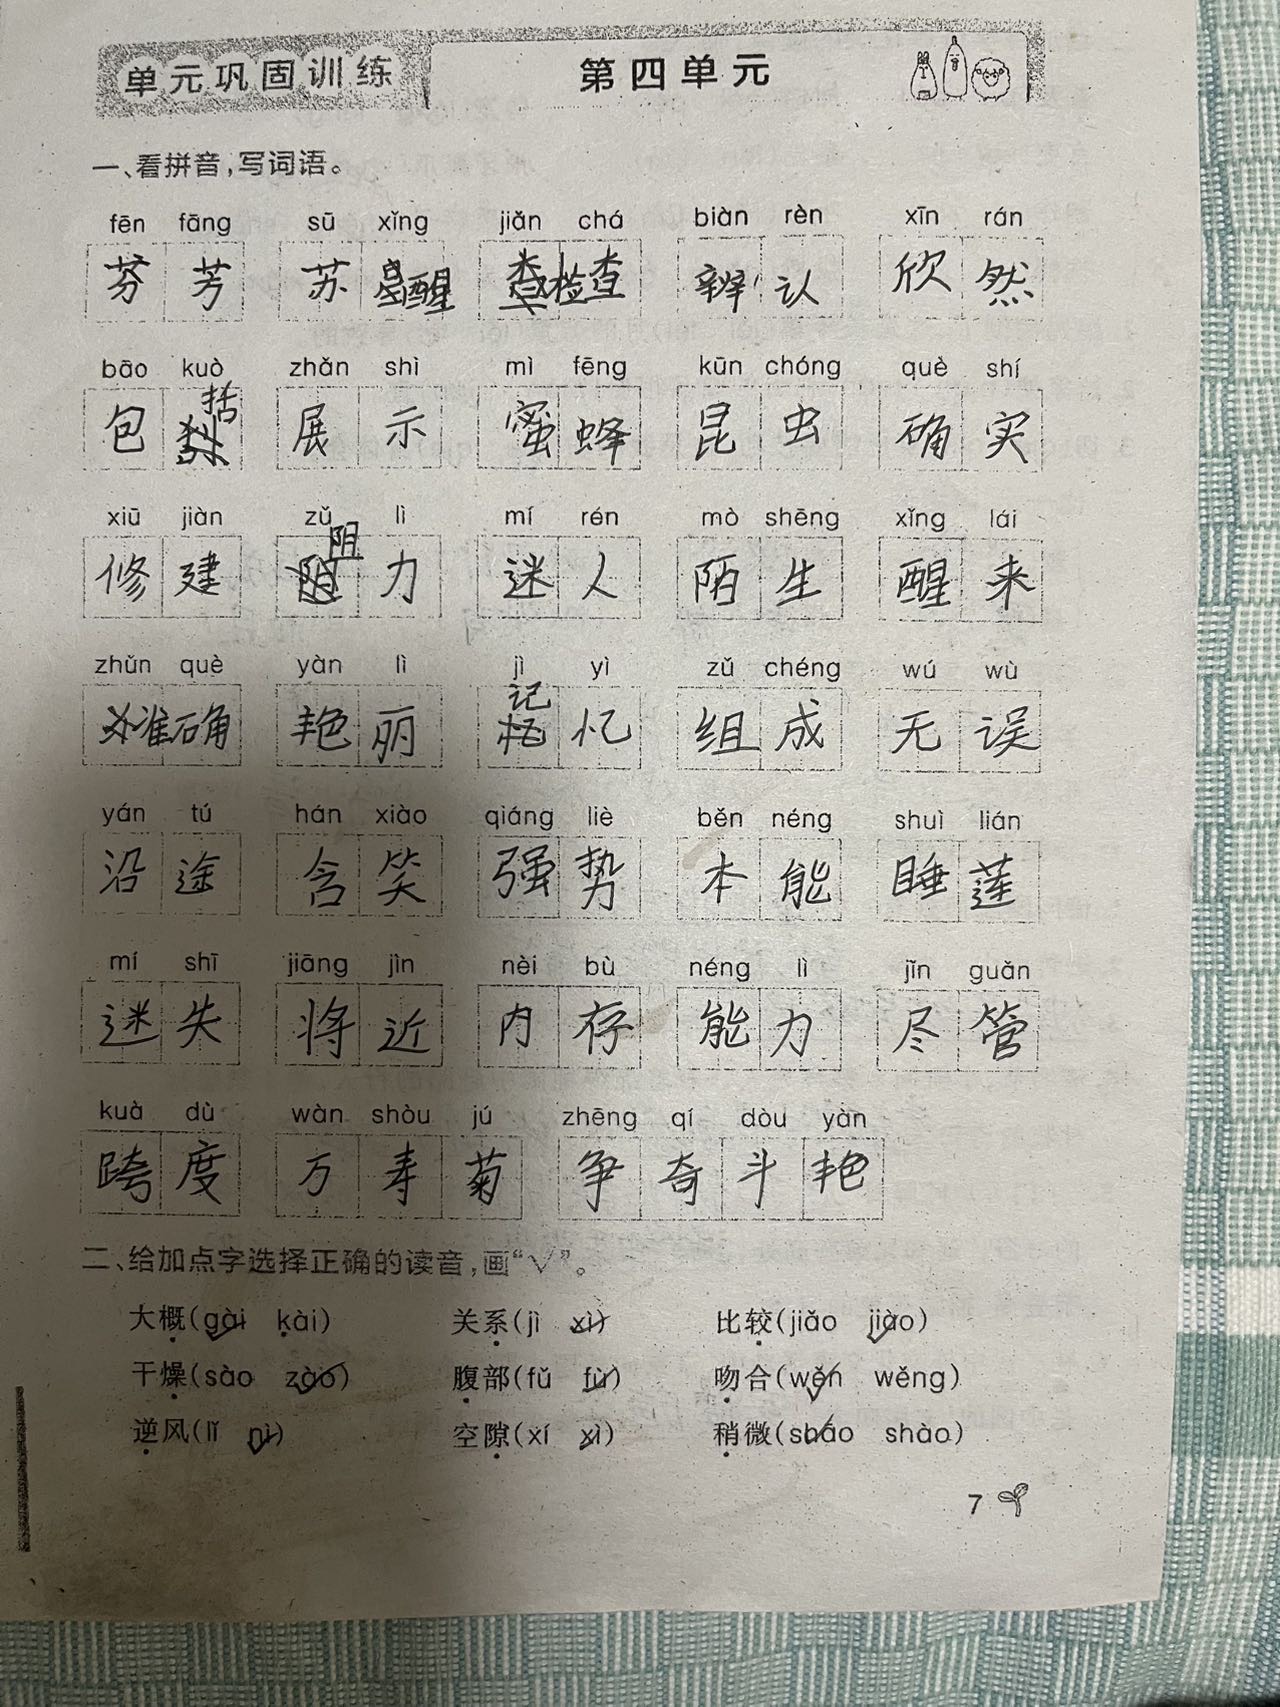 单元巩固训练 第四单元
一、看拼音,写词语。
fēn fāng sū xǐng jiǎn chá biàn rèn xīn rán
芬芳 苏醒 检查 辨认 欣然
bāo kuò zhǎn shì mì fēng kūn chóng què shí
包括 展示 蜜蜂 昆虫 确实
xiū jiàn zǔ lì mí rén mò shēng xǐng lái
修建 阻力 迷人 陌生 醒来
zhǔn què yàn lì jì yì zǔ chéng wú wù
准确 艳丽 记忆 组成 无误
yán tú hán xiào qiáng liè běn néng shuì lián
沿途 含笑 强势 本能 睡莲
mí shī jiāng jìn nèi bù néng lì jǐn guǎn
迷失 将近 内存 能力 尽管
kuà dù wàn shòu jú zhēng qí dòu yàn
跨度 万寿菊 争奇斗艳
二、给加点字选择正确的读音,画“√”。
大概(gài kài) 关系(jì xì) 比较(jiǎo jiào)
干燥(sào zào) 腹部(fǔ fù) 吻合(wěn wěng)
逆风(lǐ nì) 空隙(xí xì) 稍微(shāo shào)
7